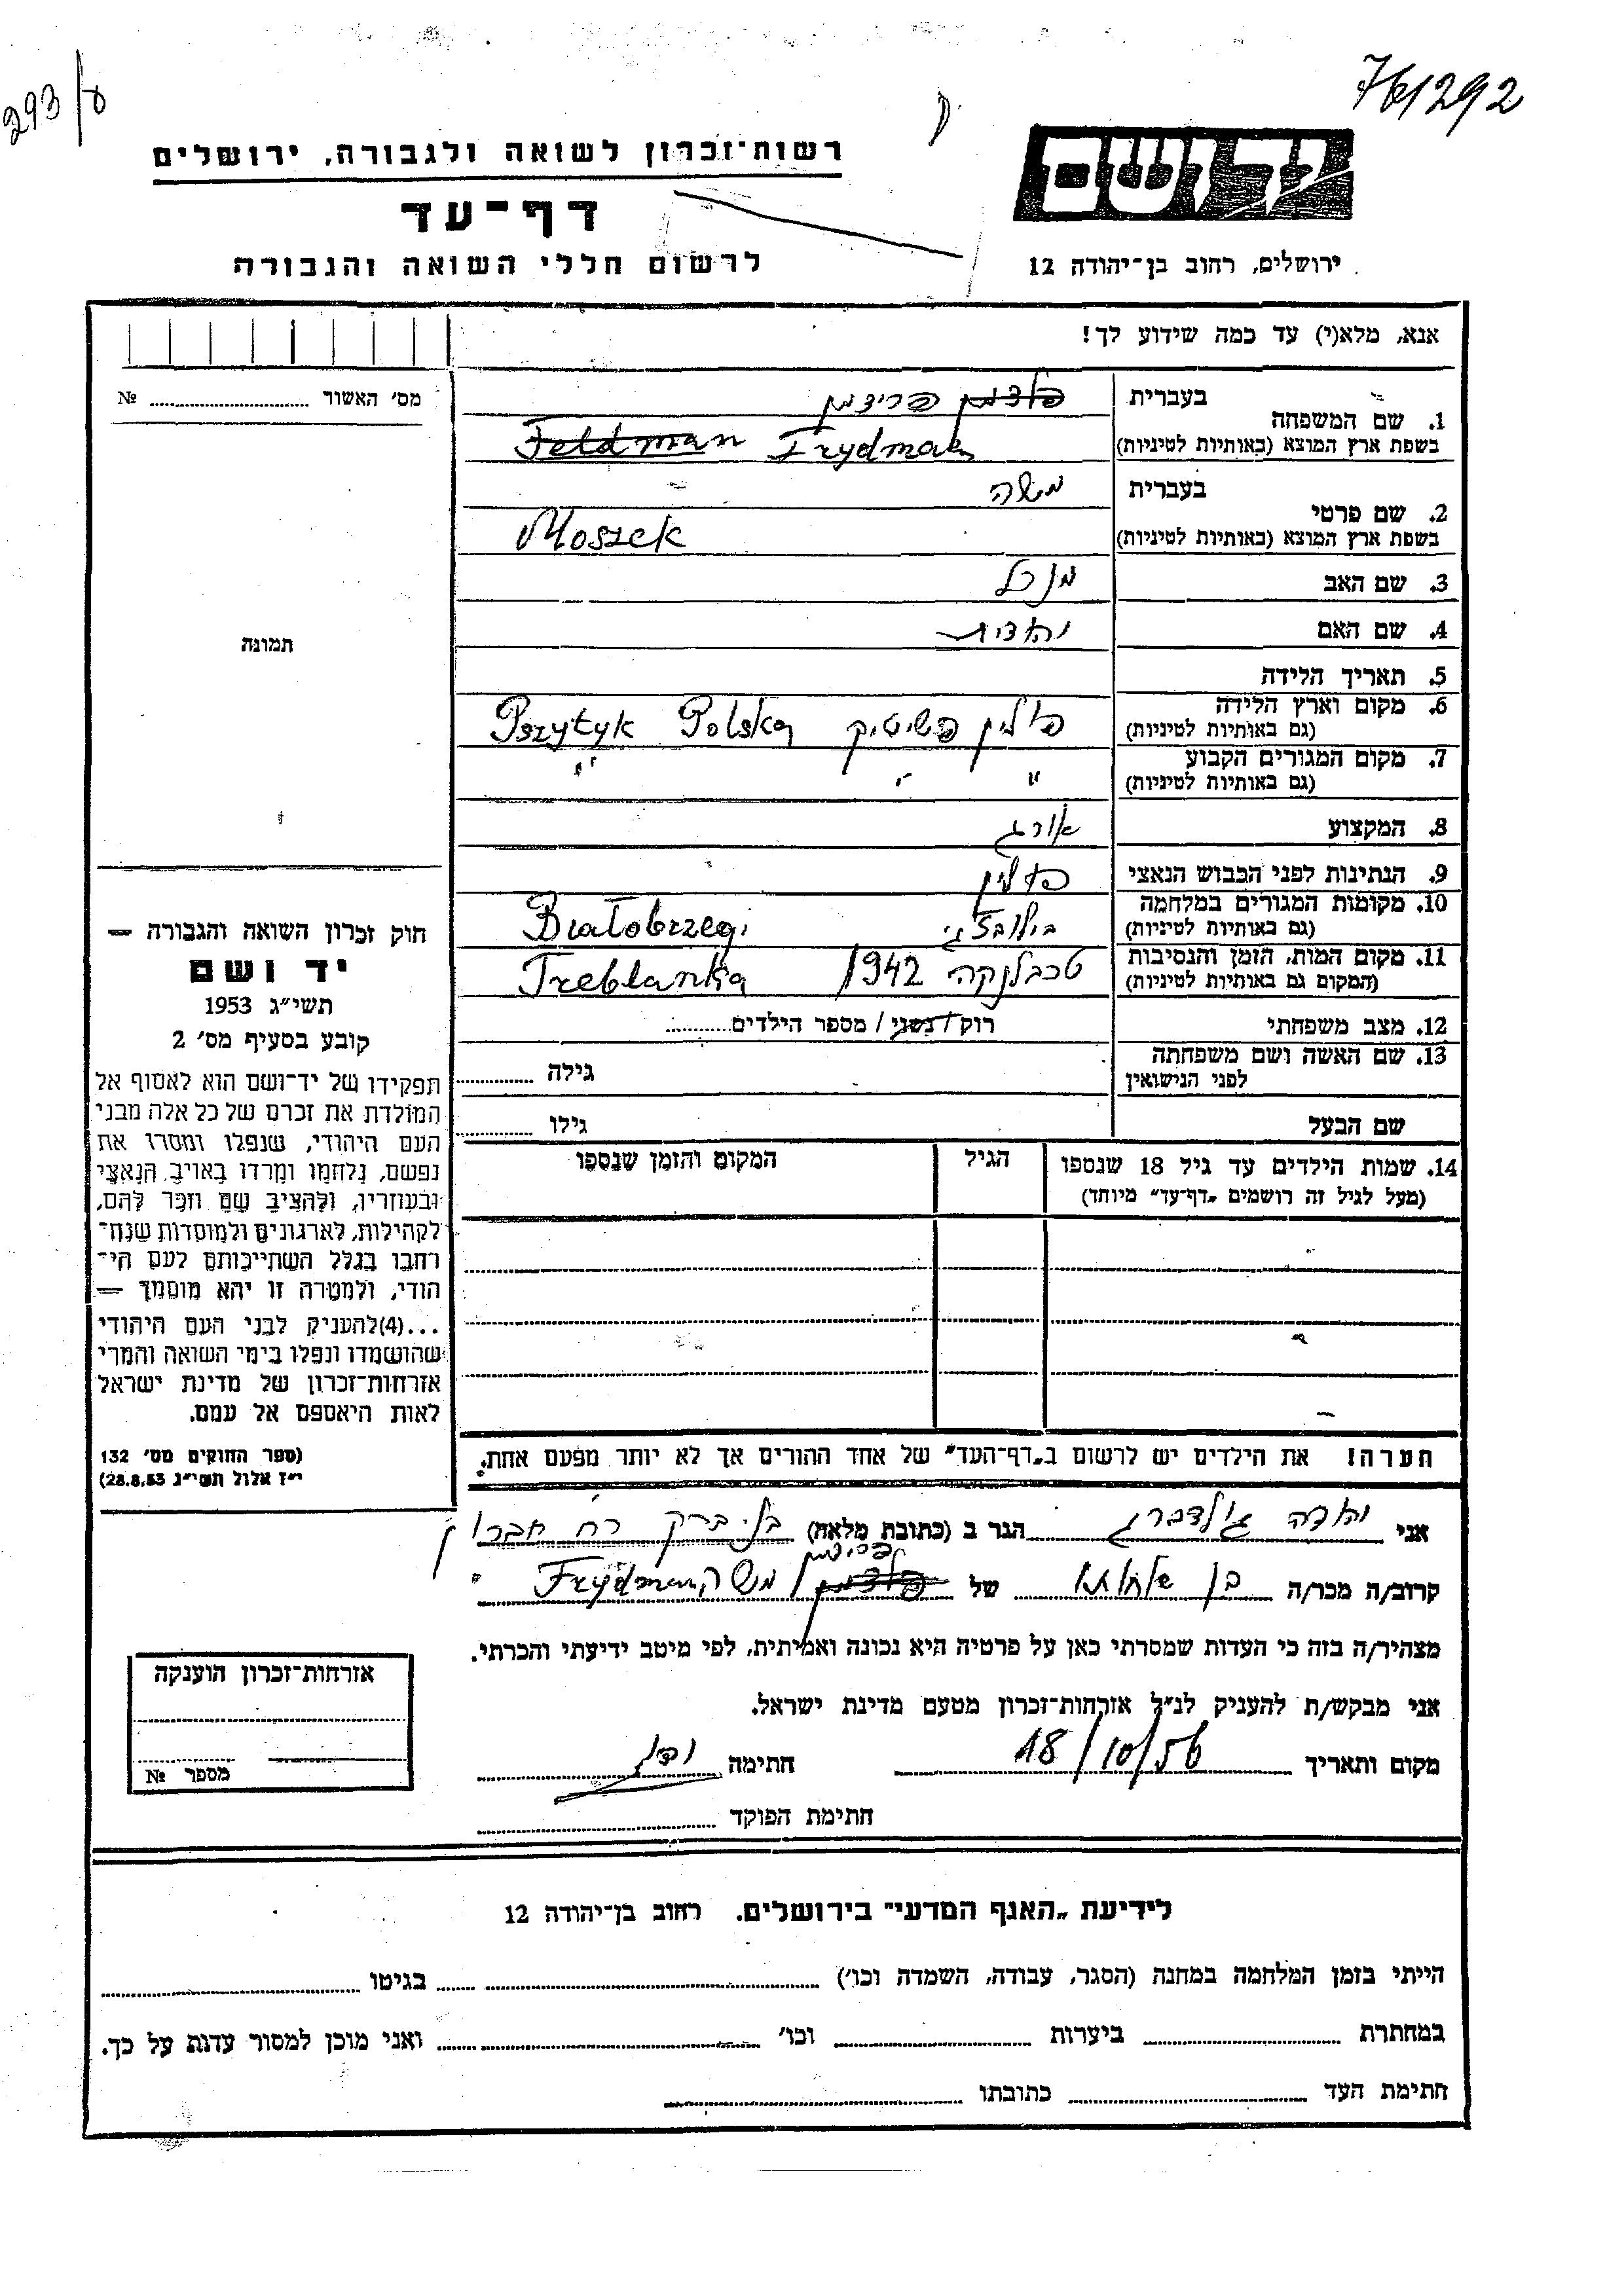 293/ד
761292
יד ושם
רשות־זכרון לשואה ולגבורה, ירושלים
דף־עד
לרשום חללי השואה והגבורה
ירושלים, רחוב בן־יהודה 12
אנא, מלא(י) עד כמה שידוע לך!
מס׳ האשור № 
תמונה
1. שם המשפחה
בעברית פלדמן פרידמן
בשפת ארץ המוצא (באותיות לטיניות) Feldman Frydman
2. שם פרטי
בעברית משה
בשפת ארץ המוצא (באותיות לטיניות) Moszek
3. שם האב מנדל
4. שם האם
5. תאריך הלידה
6. מקום וארץ הלידה
(גם באותיות לטיניות) פולין פשיטיק Pszytyk Polska
7. מקום המגורים הקבוע
(גם באותיות לטיניות) " " "
8. המקצוע אורג
9. הנתינות לפני הכבוש הנאצי פולין
10. מקומות המגורים במלחמה
(גם באותיות לטיניות) Białobrzegi
11. מקום המות, הזמן והנסיבות
(המקום גם באותיות לטיניות) טרבלנקה 1942 Treblanka
12. מצב משפחתי רוק/נשוי/מספר הילדים
13. שם האשה ושם משפחתה
לפני הנישואין גילה
שם הבעל גילו
14. שמות הילדים עד גיל 18 שנספו
(מעל לגיל זה רושמים „דף־עד” מיוחד)
הגיל
המקום והזמן שנספו
הערה! את הילדים יש לרשום ב„דף־העד” של אחד ההורים אך לא יותר מפעם אחת.
חוק זכרון השואה והגבורה —
יד ושם
תשי״ג 1953
קובע בסעיף מס׳ 2
תפקידו של יד־ושם הוא לאסוף אל
המולדת את זכרם של כל אלה מבני
העם היהודי, שנפלו ומסרו את
נפשם, נלחמו ומרדו באויב הנאצי
ובעוזריו, ולהציב שם וזכר להם,
לקהילות, לארגונים ולמוסדות שנח־
רבו בגלל השתייכותם לעם הי־
הודי, ולמטרה זו יהא מוסמך —
...(4)להעניק לבני העם היהודי
שהושמדו ונפלו בימי השואה והמרי
אזרחות־זכרון של מדינת ישראל
לאות היאספם אל עמם.
(ספר החוקים מס׳ 132
י״ז אלול תשי״ג 28.8.53)
אני גולדברג הגר ב (כתובת מלאה) בני ברק רח חברון
קרוב/ה מכר/ה בן של פלדמן פרידמן משה Frydman
מצהיר/ה בזה כי העדות שמסרתי כאן על פרטיה היא נכונה ואמיתית, לפי מיטב ידיעתי והכרתי.
אני מבקש/ת להעניק לנ״ל אזרחות־זכרון מטעם מדינת ישראל.
מקום ותאריך 18/10/56 חתימה
חתימת הפוקד
אזרחות־זכרון הוענקה
מספר №
לידיעת „האגף המדעי” בירושלים. רחוב בן־יהודה 12
הייתי בזמן המלחמה במחנה (הסגר, עבודה, השמדה וכו׳) בגיטו
במחתרת ביערות וכו׳ ואני מוכן למסור עדות על כך.
חתימת העד כתובתו